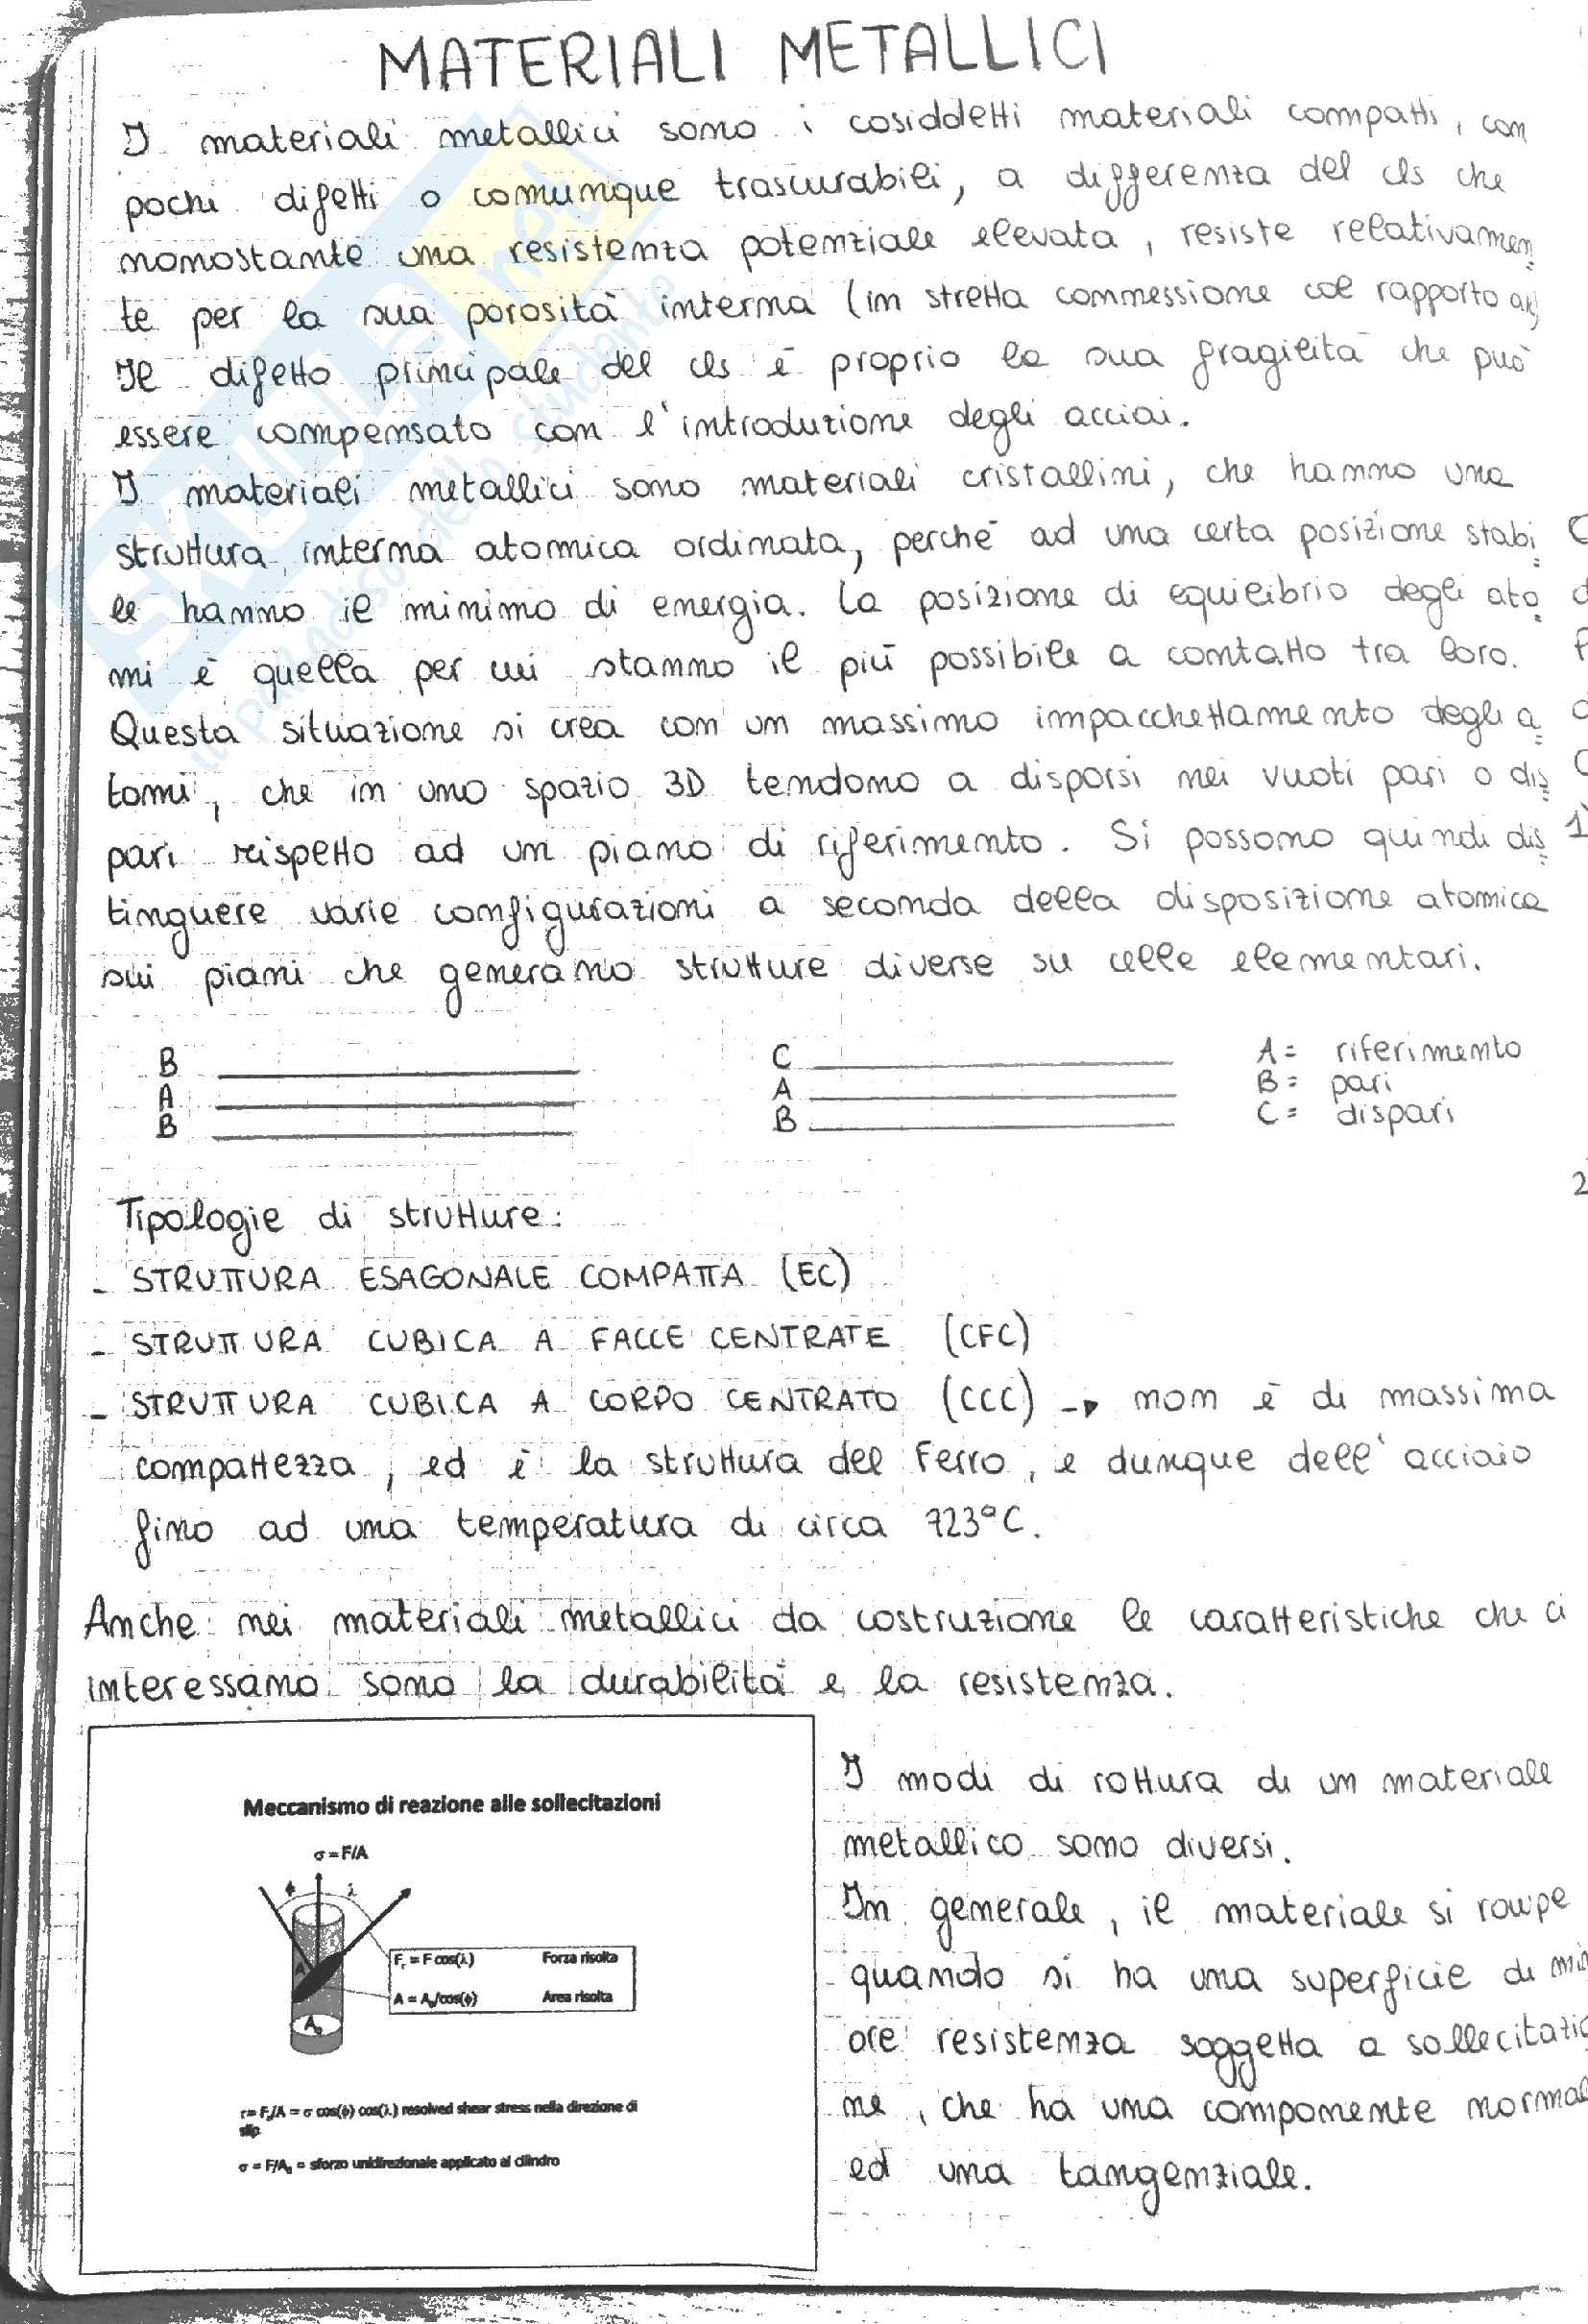 MATERIALI METALLICI
I materiali metallici sono i cosiddetti materiali compatti, con
pochi difetti o comunque trascurabili, a differenza del cls che
nonostante una resistenza potenziale elevata, resiste relativamen
te per la sua porosità interna (in stretta connessione col rapporto a/c)
Il difetto principale del cls è proprio la sua fragilità che può
essere compensato con l'introduzione degli acciai.
I materiali metallici sono materiali cristallini, che hanno una
struttura interna atomica ordinata, perché ad una certa posizione stabi
le hanno il minimo di energia. La posizione di equilibrio degli ato
mi è quella per cui stanno il più possibile a contatto tra loro.
Questa situazione si crea con un massimo impacchettamento degli a
tomi, che in uno spazio 3D tendono a disporsi nei vuoti pari o dis
pari rispetto ad un piano di riferimento. Si possono quindi dis
tinguere varie configurazioni a seconda della disposizione atomica
sui piani che generano strutture diverse su celle elementari.
B
A
B
C
A
B
A = riferimento
B = pari
C = dispari
Tipologie di strutture:
- STRUTTURA ESAGONALE COMPATTA (EC)
- STRUTTURA CUBICA A FACCE CENTRATE (CFC)
- STRUTTURA CUBICA A CORPO CENTRATO (CCC) → non è di massima
compattezza, ed è la struttura del Ferro, e dunque dell'acciaio
fino ad una temperatura di circa 723°C.
Anche nei materiali metallici da costruzione le caratteristiche che ci
interessano sono la durabilità e la resistenza.
Meccanismo di reazione alle sollecitazioni
σ = F/A
ϕ λ
A
A₀
Fᵣ = F cos(λ) Forza risolta
A = A₀/cos(ϕ) Area risolta
τ = Fᵣ/A = σ cos(ϕ) cos(λ) resolved shear stress nella direzione di
slip
σ = F/A₀ = sforzo unidirezionale applicato al cilindro
I modi di rottura di un materiale
metallico sono diversi.
In generale, il materiale si rompe
quando si ha una superficie di min
ore resistenza soggetta a sollecitazio
ne, che ha una componente normale
ed una tangenziale.
SKUOLA.net
il paradiso dello studente